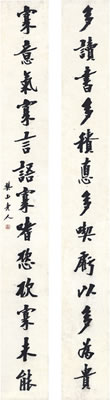 多讀書多積悳多喫虧以多為貴
寡意氣寡言語寡嗜慾欲寡未能